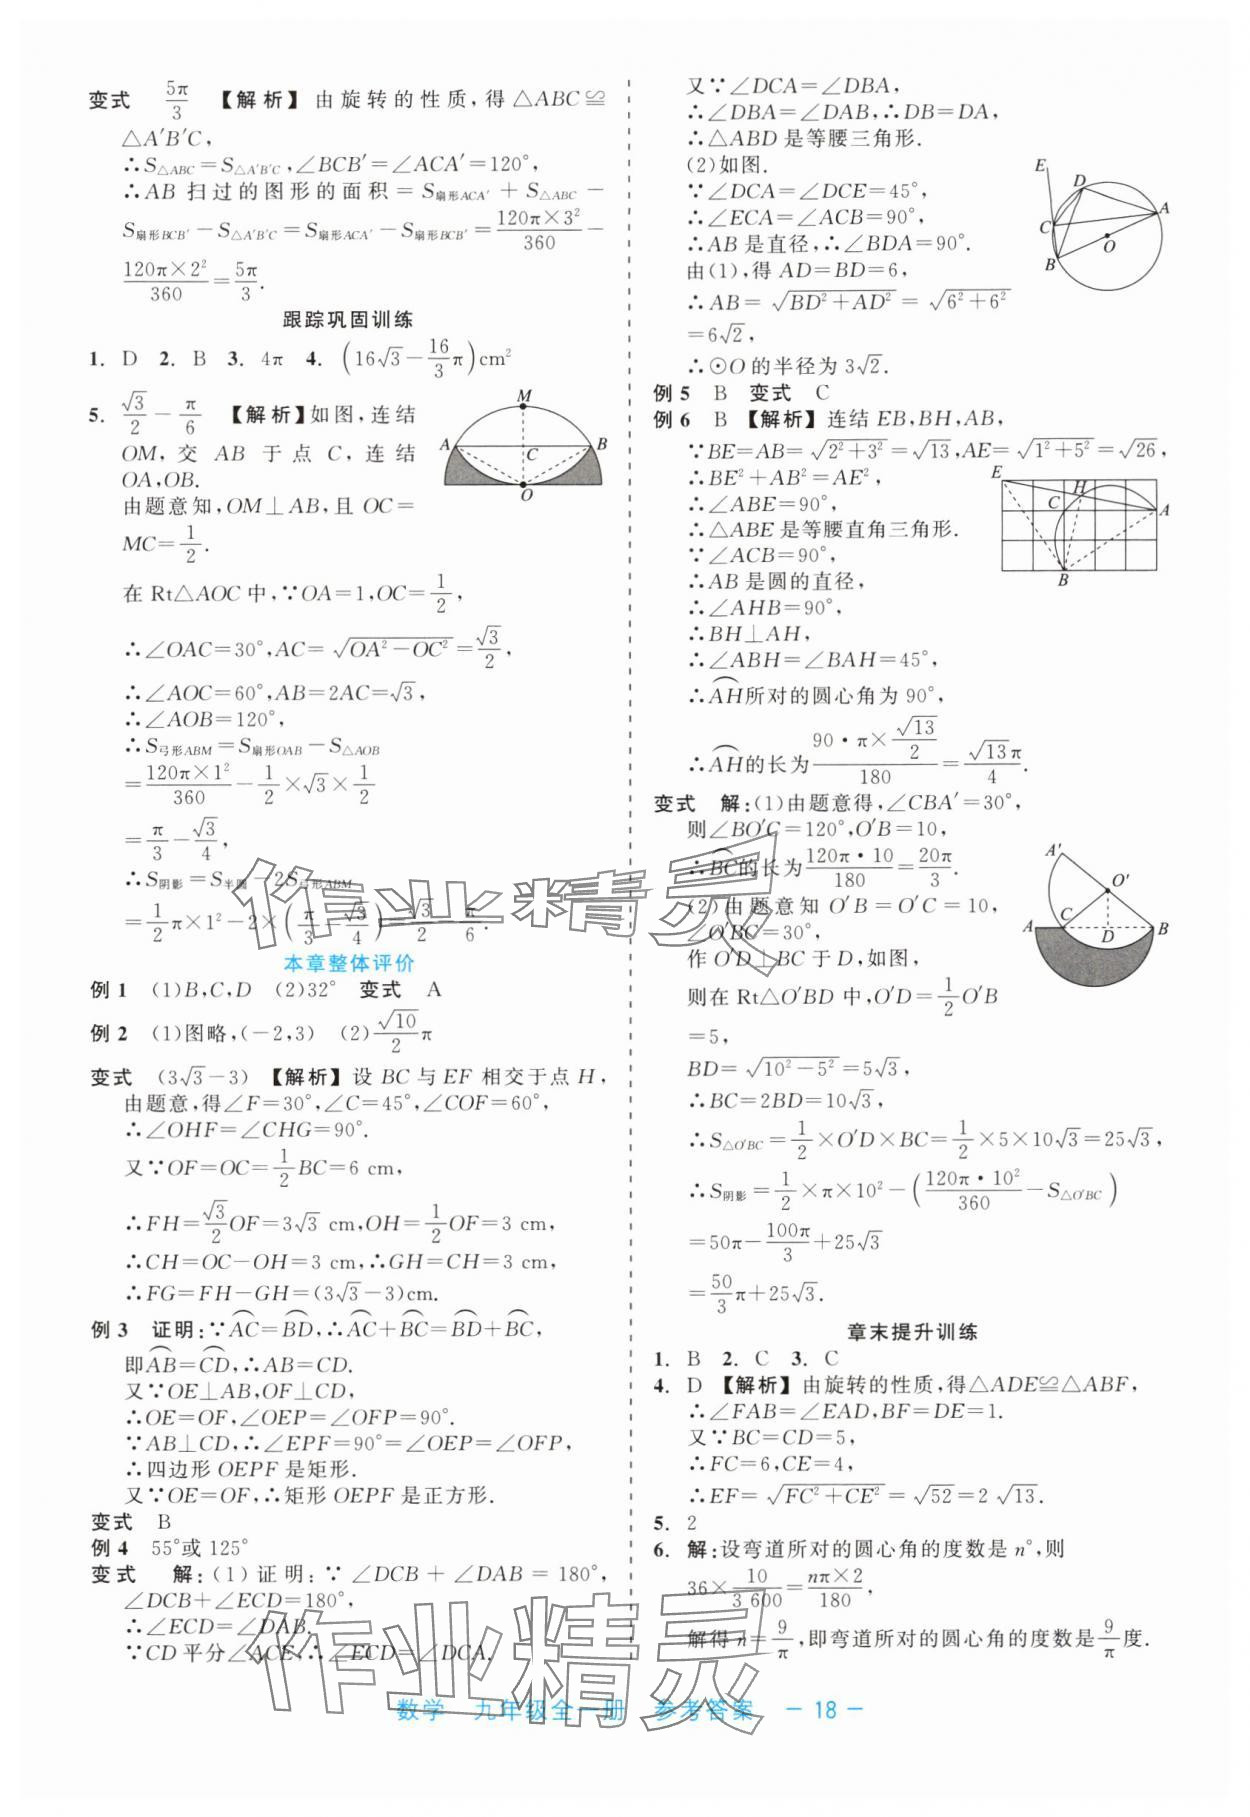 变式 5π/3 【解析】由旋转的性质,得△ABC≌
△A′B′C,
∴S△ABC=S△A′B′C,∠BCB′=∠ACA′=120°,
∴AB 扫过的图形的面积=S扇形ACA′+S△ABC-
S扇形BCB′-S△A′B′C=S扇形ACA′-S扇形BCB′=120π×3²/360-
120π×2²/360=5π/3.
跟踪巩固训练
1. D 2. B 3. 4π 4. (16√3-16/3π)cm²
5. √3/2-π/6 【解析】如图,连结
OM,交 AB 于点 C,连结
OA,OB.
由题意知,OM⊥AB,且 OC=
MC=1/2.
在 Rt△AOC 中,∵OA=1,OC=1/2,
∴∠OAC=30°,AC=√(OA²-OC²)=√3/2,
∴∠AOC=60°,AB=2AC=√3,
∴∠AOB=120°,
∴S弓形ABM=S扇形OAB-S△AOB
=120π×1²/360-1/2×√3×1/2
=π/3-√3/4,
∴S阴影=S半圆-2S弓形ABM
=1/2π×1²-2×(π/3-√3/4)=√3/2-π/6.
M
A
C
B
O
本章整体评价
例 1 (1)B,C,D (2)32° 变式 A
例 2 (1)图略,(-2,3) (2)√10/2π
变式 (3√3-3) 【解析】设 BC 与 EF 相交于点 H,
由题意,得∠F=30°,∠C=45°,∠COF=60°,
∴∠OHF=∠CHG=90°.
又∵OF=OC=1/2BC=6 cm,
∴FH=√3/2OF=3√3 cm,OH=1/2OF=3 cm,
∴CH=OC-OH=3 cm,∴GH=CH=3 cm,
∴FG=FH-GH=(3√3-3)cm.
例 3 证明:∵⌒AC=⌒BD,∴⌒AC+⌒BC=⌒BD+⌒BC,
即⌒AB=⌒CD,∴AB=CD.
又∵OE⊥AB,OF⊥CD,
∴OE=OF,∠OEP=∠OFP=90°.
∵AB⊥CD,∴∠EPF=90°=∠OEP=∠OFP,
∴四边形 OEPF 是矩形.
又∵OE=OF,∴矩形 OEPF 是正方形.
变式 B
例 4 55°或 125°
变式 解:(1)证明:∵∠DCB+∠DAB=180°,
∠DCB+∠ECD=180°,
∴∠ECD=∠DAB.
∵CD 平分∠ACE,∴∠ECD=∠DCA.
又∵∠DCA=∠DBA,
∴∠DBA=∠DAB,∴DB=DA,
∴△ABD 是等腰三角形.
(2)如图.
∵∠DCA=∠DCE=45°,
∴∠ECA=∠ACB=90°,
∴AB 是直径,∴∠BDA=90°.
由(1),得 AD=BD=6,
∴AB=√(BD²+AD²)=√(6²+6²)
=6√2,
∴⊙O 的半径为 3√2.
E
D
A
C
O
B
例 5 B 变式 C
例 6 B 【解析】连结 EB,BH,AB,
∵BE=AB=√(2²+3²)=√13,AE=√(1²+5²)=√26,
∴BE²+AB²=AE²,
∴∠ABE=90°,
∴△ABE 是等腰直角三角形.
∵∠ACB=90°,
∴AB 是圆的直径,
∴∠AHB=90°,
∴BH⊥AH,
∴∠ABH=∠BAH=45°,
∴⌒AH所对的圆心角为 90°,
∴⌒AH的长为(90•π×√13/2)/180=√13π/4.
E
H
C
A
B
变式 解:(1)由题意得,∠CBA′=30°,
则∠BO′C=120°,O′B=10,
∴⌒BC的长为120π•10/180=20π/3.
(2)由题意知 O′B=O′C=10,
∠O′BC=30°,
作 O′D⊥BC 于 D,如图,
则在 Rt△O′BD 中,O′D=1/2O′B
=5,
BD=√(10²-5²)=5√3,
∴BC=2BD=10√3,
∴S△O′BC=1/2×O′D×BC=1/2×5×10√3=25√3,
∴S阴影=1/2×π×10²-(120π•10²/360-S△O′BC)
=50π-100π/3+25√3
=50/3π+25√3.
A′
O′
C
A
D
B
章末提升训练
1. B 2. C 3. C
4. D 【解析】由旋转的性质,得△ADE≌△ABF,
∴∠FAB=∠EAD,BF=DE=1.
又∵BC=CD=5,
∴FC=6,CE=4,
∴EF=√(FC²+CE²)=√52=2√13.
5. 2
6. 解:设弯道所对的圆心角的度数是 n°,则
36×10/3 600=nπ×2/180,
解得 n=9/π,即弯道所对的圆心角的度数是9/π度.
作业精灵
作业精灵
数学 九年级全一册 参考答案 -18-